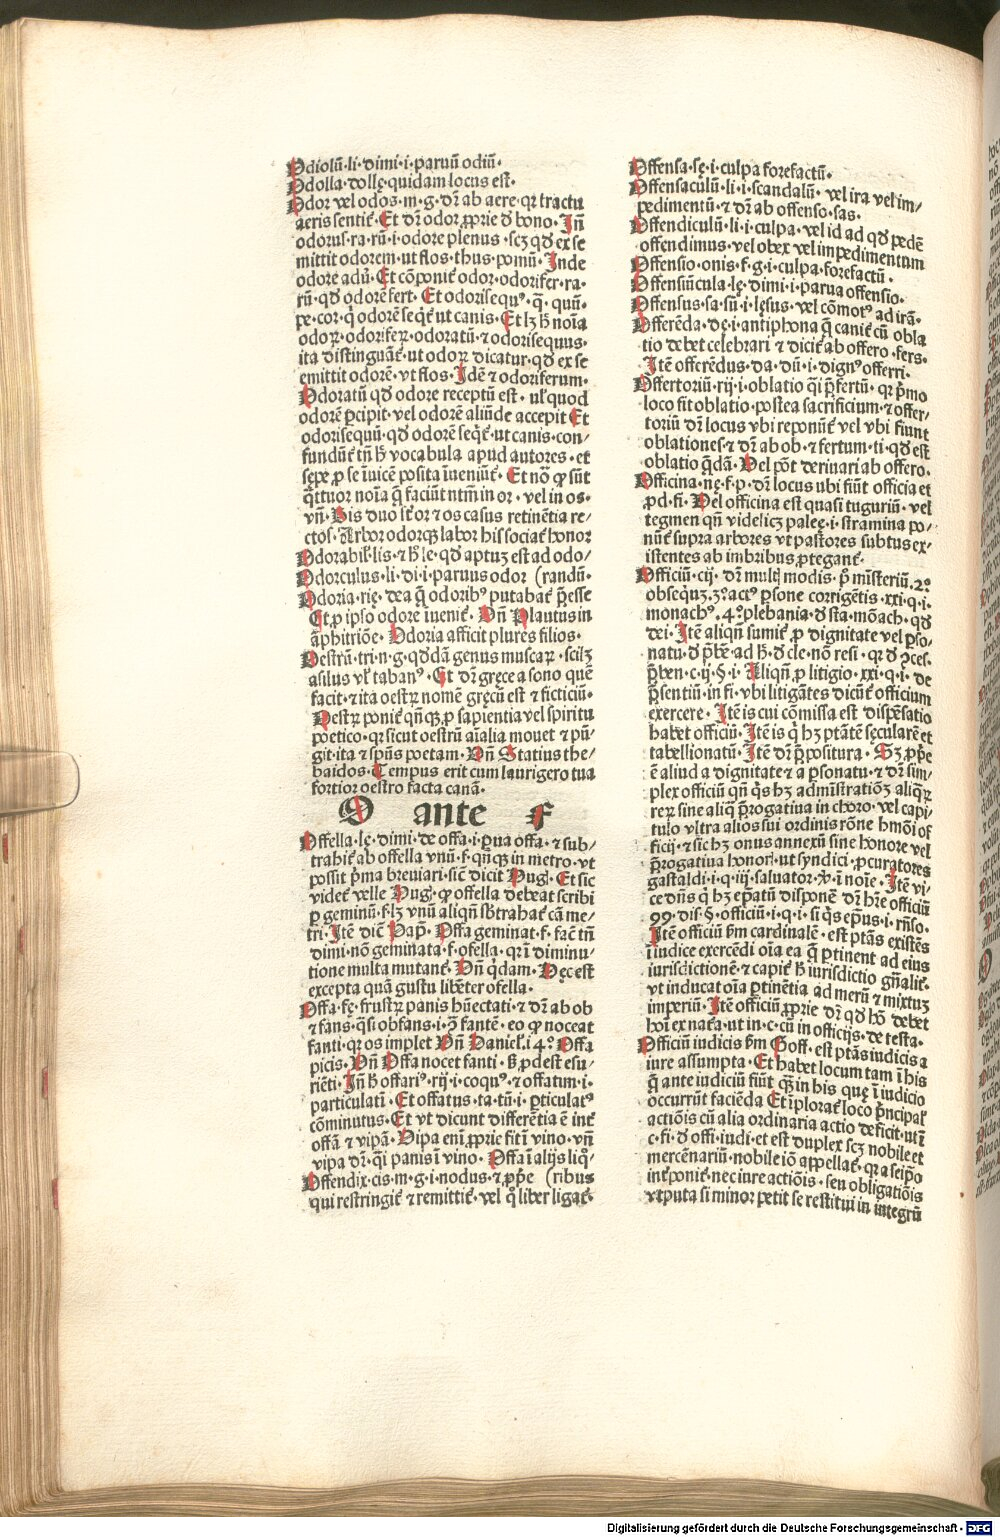 Odiolū·li·dimi·i·paruū odiū·
Odolla·dollę·quidam locus est·
Odor vel odos·m·g·dr̄ ab aere·qr tractu
aeris sentiť·Et dr̄ odor ꝓprie đ bono·Jn̄
odorus·ra·rū·i·odore plenus·scꝫ qđ ex se
mittit odorem·ut flos·thus·pomū·Jnde
odore adū·Et cōponiť odor·odorifer·ra·
rū·qđ odorē fert·Et odorisequꝰ·q̄·quū·
pe·cor·q̇ odorē seqť ut canis·Et lꝫ ħ noīa
odoꝝ·odorifeꝝ·odoratū·⁊ odorisequus·
ita distinguāť·ut odoꝝ dicatur·qđ ex se
emittit odorē·vt flos·Jdē ⁊ odoriferum·
Odoratū qđ odore receptū est·ul' quod
odorē ꝑcipit·vel odorē aliūde accepit Et
odorisequū·qđ odorē seqť·ut canis·con/
fundūť tn̄ ħ vocabula apud autores·et
sepe ꝓ se īuicē posita īueniūť·Et nō ꝙ sūt
q̇ttuor noīa q̄ faciūt ntm̄ in or·vel in os·
vn̄·His duo sť or ⁊ os casus retinētia re/
ctos·Arbor odorqꝫ labor his sociať honor
Odorabil'·lis·⁊ ħ le·qđ aptuꝫ est ad odo/
Odorculus·li·di·i·paruus odor (randū·
Odoria·rię·dea q̄ odoribꝰ putabať p̄esse
Et ꝓ ipso odore īueniť·Vn̄ Plautus in
āphitriōe·Odoria afficit plures filios·
Oestrū·tri·n·g·qđdā genus muscaꝝ·scilꝫ
asilus vl' tabanꝰ·Et dr̄ gręce a sono quē
facit·⁊ ita oestrꝝ nomē gręcū est ⁊ ficticiū·
Oestrꝝ poniť qn̄qꝫ ꝓ sapientia vel spiritu
poetico·qr sicut oestrū aīalia mouet ⁊ pū·
git·ita ⁊ spūs poetam·Vn̄ Statius the/
baidos·Tempus erit cum laurigero tua
fortior oestro facta canā·
O ante F
Offella·lę·dimi·de offa·i·ꝑua offa·⁊ sub/
trahiť ab offella vnū·f·qn̄qꝫ in metro·vt
possit p̄ma breuiari·sic̄ dicit Hug̣·Et sic
videť velle Hug̣·ꝙ offella debeat scribi
ꝑ geminū·f·lꝫ vnū aliqn̄ sb̄trahať cā me/
tri·Jtē dic̄ Pap̄·Offa geminat·f·fac̄ tn̄
dimi·nō geminata·f·ofella·qr ī diminu/
tione multa mutanť·Vn̄ q̇dam·Nec est
excepta quā gustu libēter ofella·
Offa·fę·frustꝝ panis hūectati·⁊ dr̄ ab ob
⁊ fans·q̄si obfans·i·ꝯ fantē·eo ꝙ noceat
fanti·qr os implet Vn̄ Daniel'·i 4°·Offa
picis·Vn̄ Offa nocet fanti·ß ꝓdest esu/
riēti·Jn̄ ħ offariꝰ·rij·i·coqꝰ·⁊ offatim·i·
particulati·Et offatus·ta·tū·i·ꝑticulatꝰ
cōminutus·Et vt dicunt differētia ē inť
offā ⁊ vipā·Vipa enī ꝓprie fit ī vino·vn̄
vipa dr̄·q̄i panis ī vino·Offa ī alijs liq̇·
Offendix·cis·m·g·i·nodus·⁊ ꝓp̄e (ribus
qui restringiť ⁊ remittiť·vel q̇ liber ligať·
Offensa·sę·i·culpa forefactū·
Offensaculū·li·i·scandalū·vel ira vel im/
pedimentū·⁊ dr̄ ab offenso·sas·
Offendiculū·li·i·culpa·vel id ad qđ pedē
offendimus·vel obex vel impedimentum
Offensio·onis·f·g·i·culpa·forefactū·
Offensiūcula·lę·dimi·i·parua offensio·
Offensus·sa·sū·i·lęsus·vel cōmotꝰ ad irā·
Offerēda·dę·i·antiphona q̄ caniť cū obla
tio debet celebrari ⁊ diciť ab offero·fers·
Jtē offerēdus·da·dū·i·dignꝰ offerri·
Offertoriū·rij·i·oblatio q̄i p̄fertū·qr p̄mo
loco fit oblatio·postea sacrificium·⁊ offer/
toriū dr̄ locus vbi reponūť vel vbi fiunt
oblationes·⁊ dr̄ ab ob·⁊ fertum·ti·qđ est
oblatio q̄dā·Vel pōt deriuari ab offero·
Officina·nę·f·p·dr̄ locus ubi fiūt officia et
ꝓd·fi·Vel officina est quasi tuguriū·vel
tegmen qn̄ videlicꝫ palęę·i·stramina po/
nūť supra arbores vt pastores subtus ex/
istentes ab imbribus ꝓtegāť·
Officiū·cij·dr̄ multꝭ modis·p̄ mīsteriū·2°
obsequꝫ·3° actꝰ ꝑsone corrigētis·xxi·q·i·
monachꝰ·4°plebania·đ sta·mōach·qđ
dei·Jtē aliqn̄ sumiť ꝓ dignitate vel ꝑso/
natu·đ p̄be·ad ħ·đ cle·nō resi·qr đ ꝯces·
p̄ben·c·ij·§·i·Aliqn̄ ꝓ litigio·xxi·q·i·de
p̄sentiū·in fi·vbi litigātes dicūť officium
exercere·Jtē is cui cōmissa est dispēsatio
habet officiū·Jtē is q̇ hꝫ ptātē sęcularē et
tabellionatū·Jtē dr̄ p̄positura·Sꝫ ꝓp̄e
ē aliud a dignitate ⁊ a ꝑsonatu·⁊ dr̄ sim/
plex officiū qn̄ q̇s hꝫ admīstratiōꝫ aliqꝝ
rerꝝ sine aliq̄ p̄rogatiua in choro·vel capi/
tulo vltra alios sui ordinis rōne hmōi of
ficij·⁊ sic hꝫ onus annexū sine honore vel
p̄rogatiua honorꝭ·ut syndici·ꝓcuratores
gastaldi·i·q·iij·saluator·ꝟ·i noīe·Jtē vi/
ce dn̄s q̇ hꝫ ep̄atū disponē dr̄ hr̄e officiū
99·dis·§·officiū·i·q·i·si q̇s ep̄us·i·rn̄so·
Jtē officiū ẜm cardinalē·est ptās existēs
ī iudice exercēdi oīa ea q̄ ꝑtinent ad eius
iurisdictionē·⁊ capiť ħ iurisdictio gn̄aliť·
vt inducat oīa ꝑtinētia ad merū ⁊ mixtuꝫ
imperiū·Jtē officiū ꝓprie dr̄ qđ hō debet
hoī ex naťa·ut in·c·cū in officijs·de testa·
Officiū iudicis ẜm Goff·est ptās iudicis a
iure assumpta·Et habet locum tam ī his
q̄ ante iudiciū fiūt q̄ꝫ in his quę ī iudicio
occurrūt faciēda Et īplorať loco p̄ncipal'
actiōis cū alia ordinaria actio deficit·ut ī
c·fi·đ offi·iudi·et est duplex scꝫ nobile et
mercēnariū·nobile iō appellať·qr a seip̄o
intēponiť·nec iure actiōis·seu obligatiōis
vtputa si minor petit se restitui in integrū
Digitalisierung gefördert durch die Deutsche Forschungsgemeinschaft - DFG